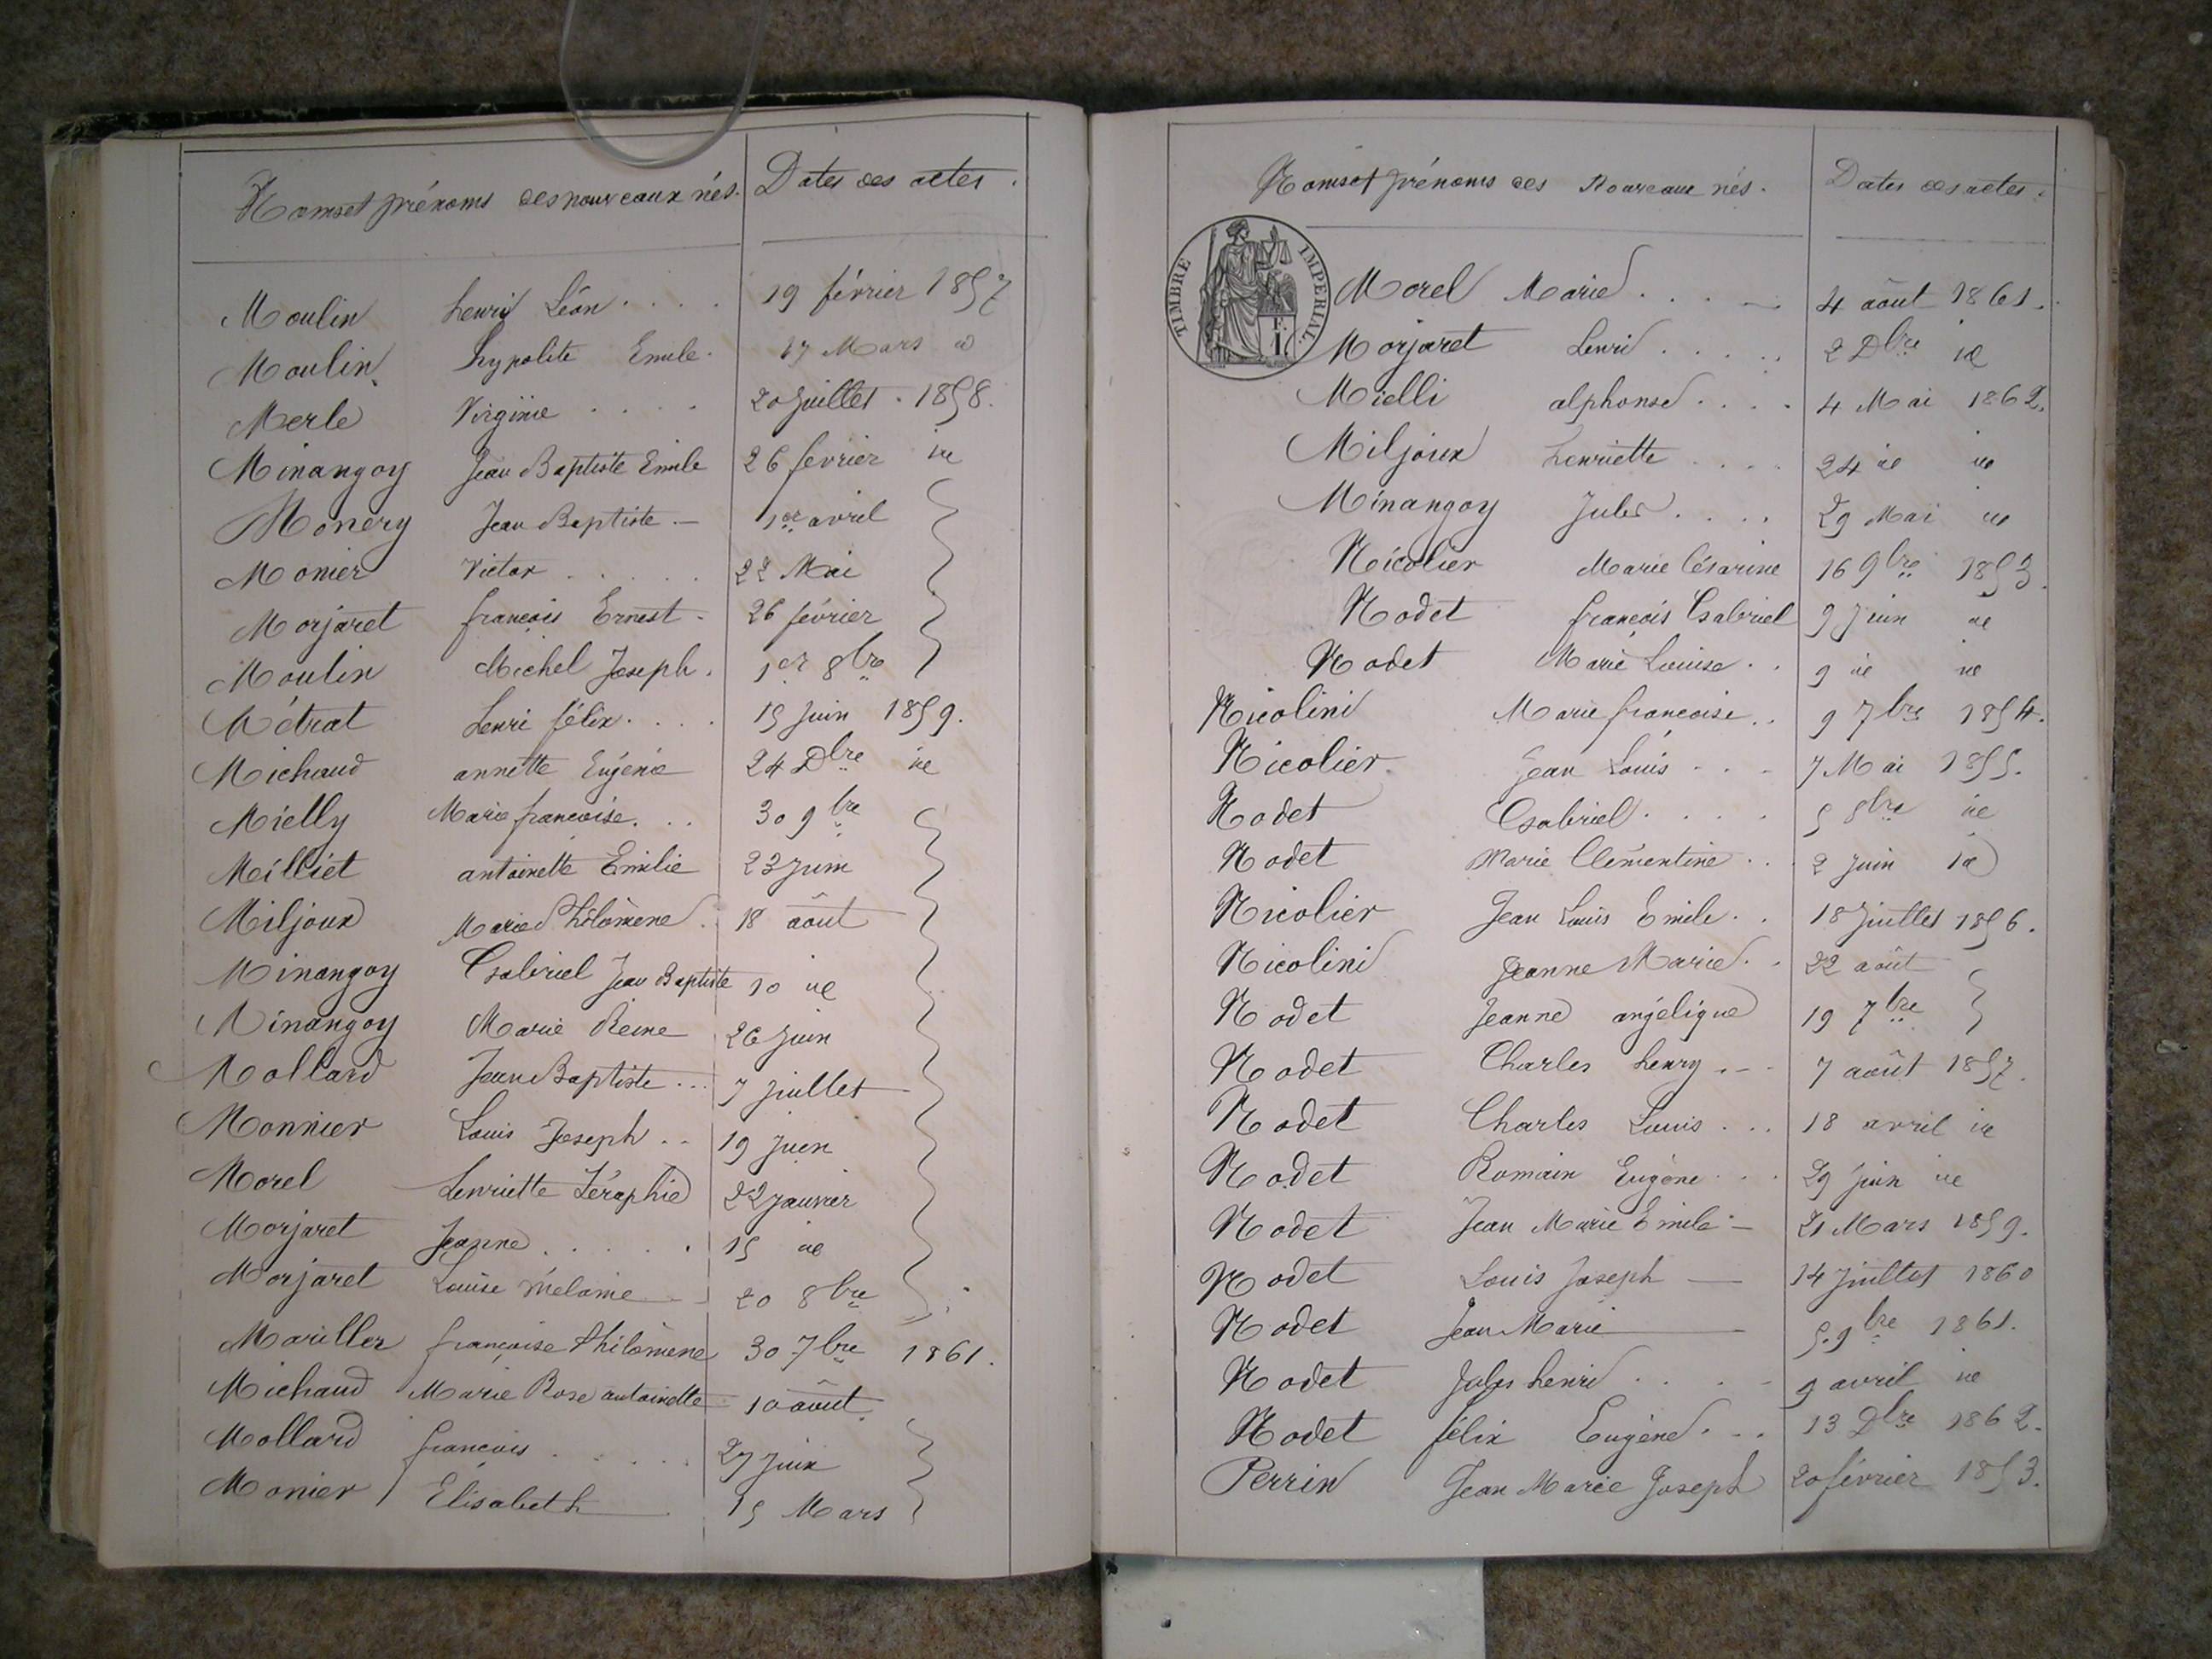 Noms et prénoms des nouveaux nés. Dates des actes.
Moulin henri Léon . . . . 19 février 1857
Moulin hypolite Emile. 17 Mars id
Merle Virginie . . . . 20 Juillet . 1858.
Minangoy Jean Baptiste Emile 26 fevrier id
Monery Jean Baptiste — 1er avril
Monier Victor . . . . . 22 Mai
Morjaret françois Ernest - 26 février
Moulin Michel Joseph . 1er 8bre
Métrat henri félix . . . . 15 Juin 1859.
Michaud annette Eugénie 24 Dbre id
Mielly Marie françoise . . . 30 9bre
Milliet antoinette Emilie 23 Juin
Miljoux Marie Philomène . 18 août
Minangoy Gabriel Jean Baptiste 10 id
Minangoy Marie Reine 26 Juin
Mollard Jean Baptiste ... 7 juillet
Monnier Louis Joseph .. 19 Juin
Morel henriette Séraphie 22 janvier
Morjaret Jeanne . . . . . 15 id
Morjaret Louise Mélanie — 20 8bre
françoise Philomène 30 7bre 1861.
Michaud Marie Rose antoinette 10 août
Mollard françois . . . . . 27 Juin
Monier Elisabeth 15 Mars
Noms et prénoms des Nouveaux nés. Dates des actes.
TIMBRE IMPERIAL.
Morel Marie . . . — 4 août 1861.
Morjaret henri . . . . . 2 Dbre id
Mielli alphonse . . . . 4 Mai 1862.
Miljoux henriette . . . . 24 id id
Minangoy Jules . . . . 29 Mai id
Nicolier Marie Césarine 16 9bre 1853.
Nodet françois Gabriel 9 Juin id
Nodet Marie Louise . . 9 id id
Nicolini Marie françoise . . 9 7bre 1854.
Nicolier Jean Louis - - - 7 Mai 1855.
Nodet Gabriel . . . . 5 8bre id
Nodet Marie Clémentine . . . 2 Juin id
Nicolier Jean Louis Emile . . 18 Juillet 1856.
Nicolini Jeanne Marie . . 22 août
Nodet Jeanne angélique 19 7bre
Nodet Charles henry . - - 7 août 1857.
Nodet Charles Louis . . . 18 avril id
Nodet Romain Eugène . . . 29 juin id
Nodet Jean Marie Emile — 21 Mars 1859.
Nodet Louis Joseph — 14 Juillet 1860
Nodet Jean Marie — 5. 9bre 1861.
Nodet Jules henri . . . - 9 avril id
Nodet félix Eugène . . . 13 Dbre 1862.
Perrin Jean Marie Joseph 20 février 1853.